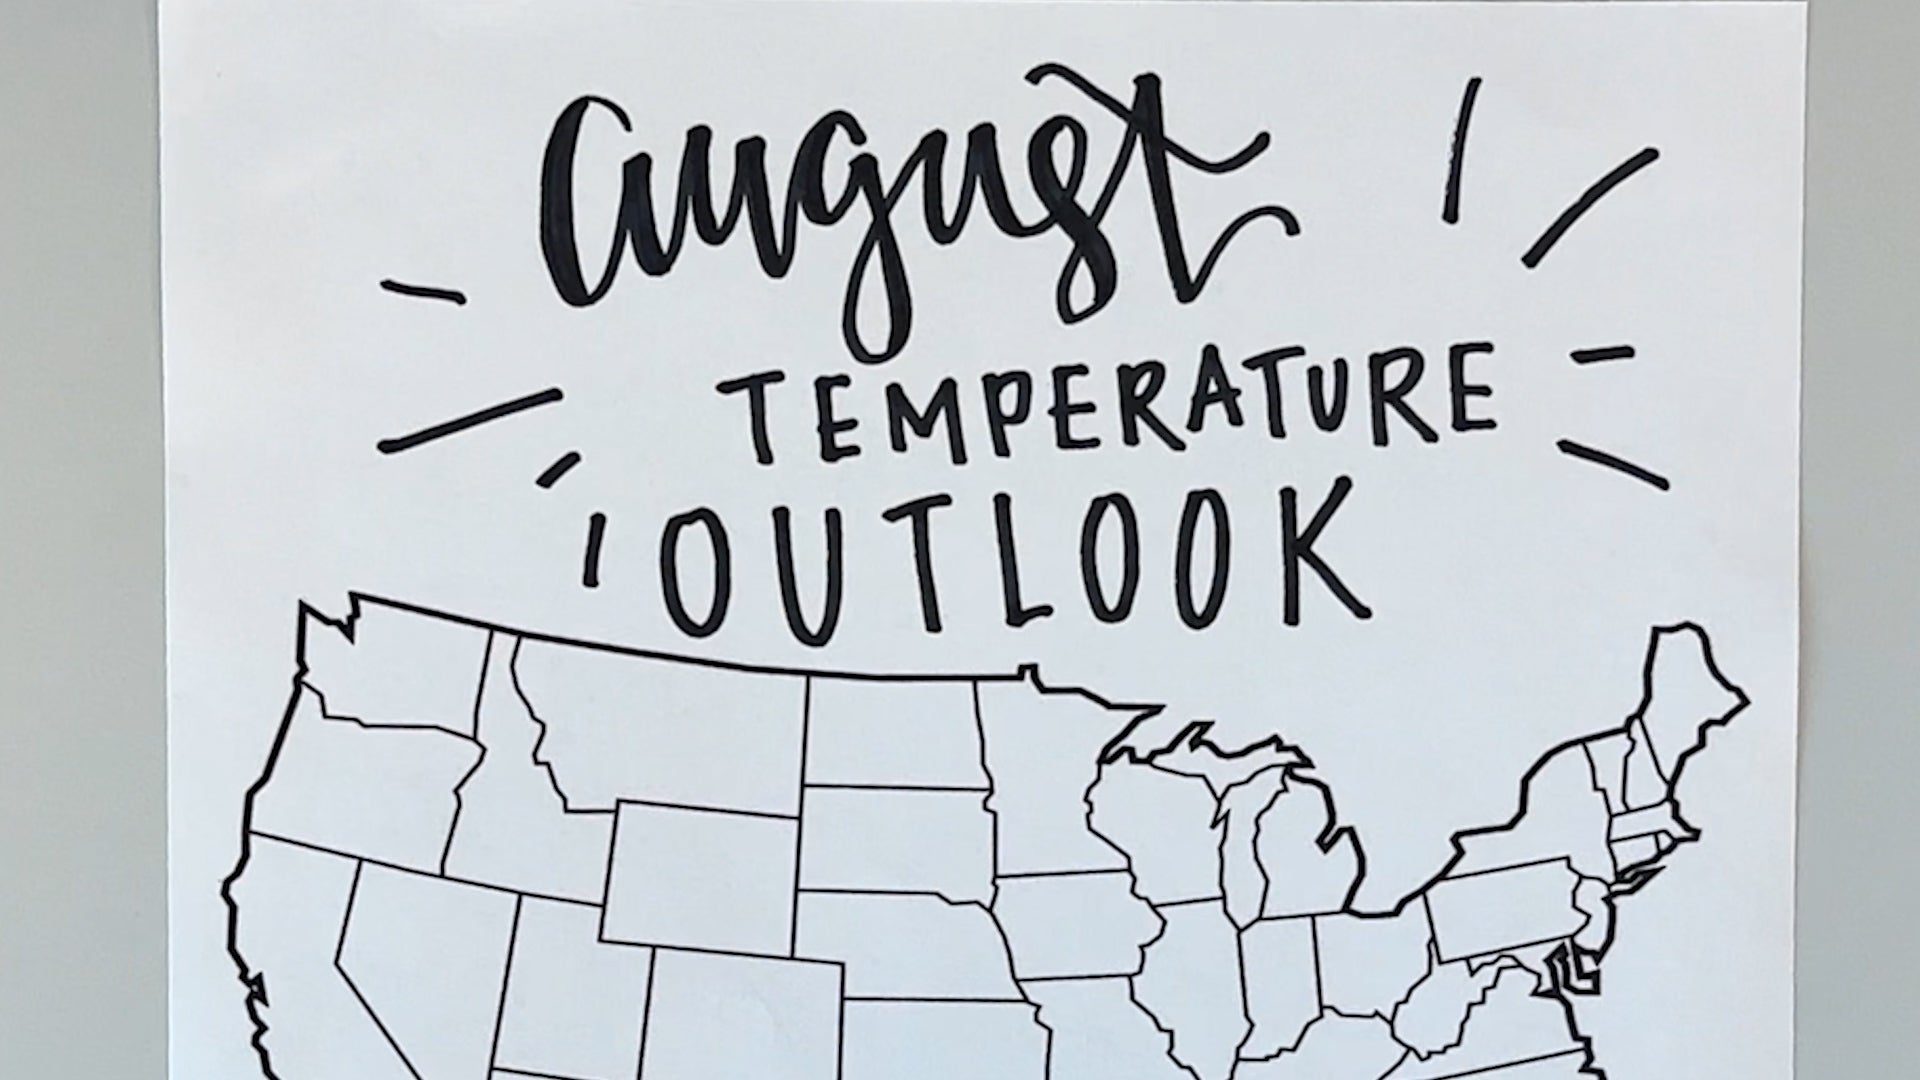 august
TEMPERATURE
OUTLOOK